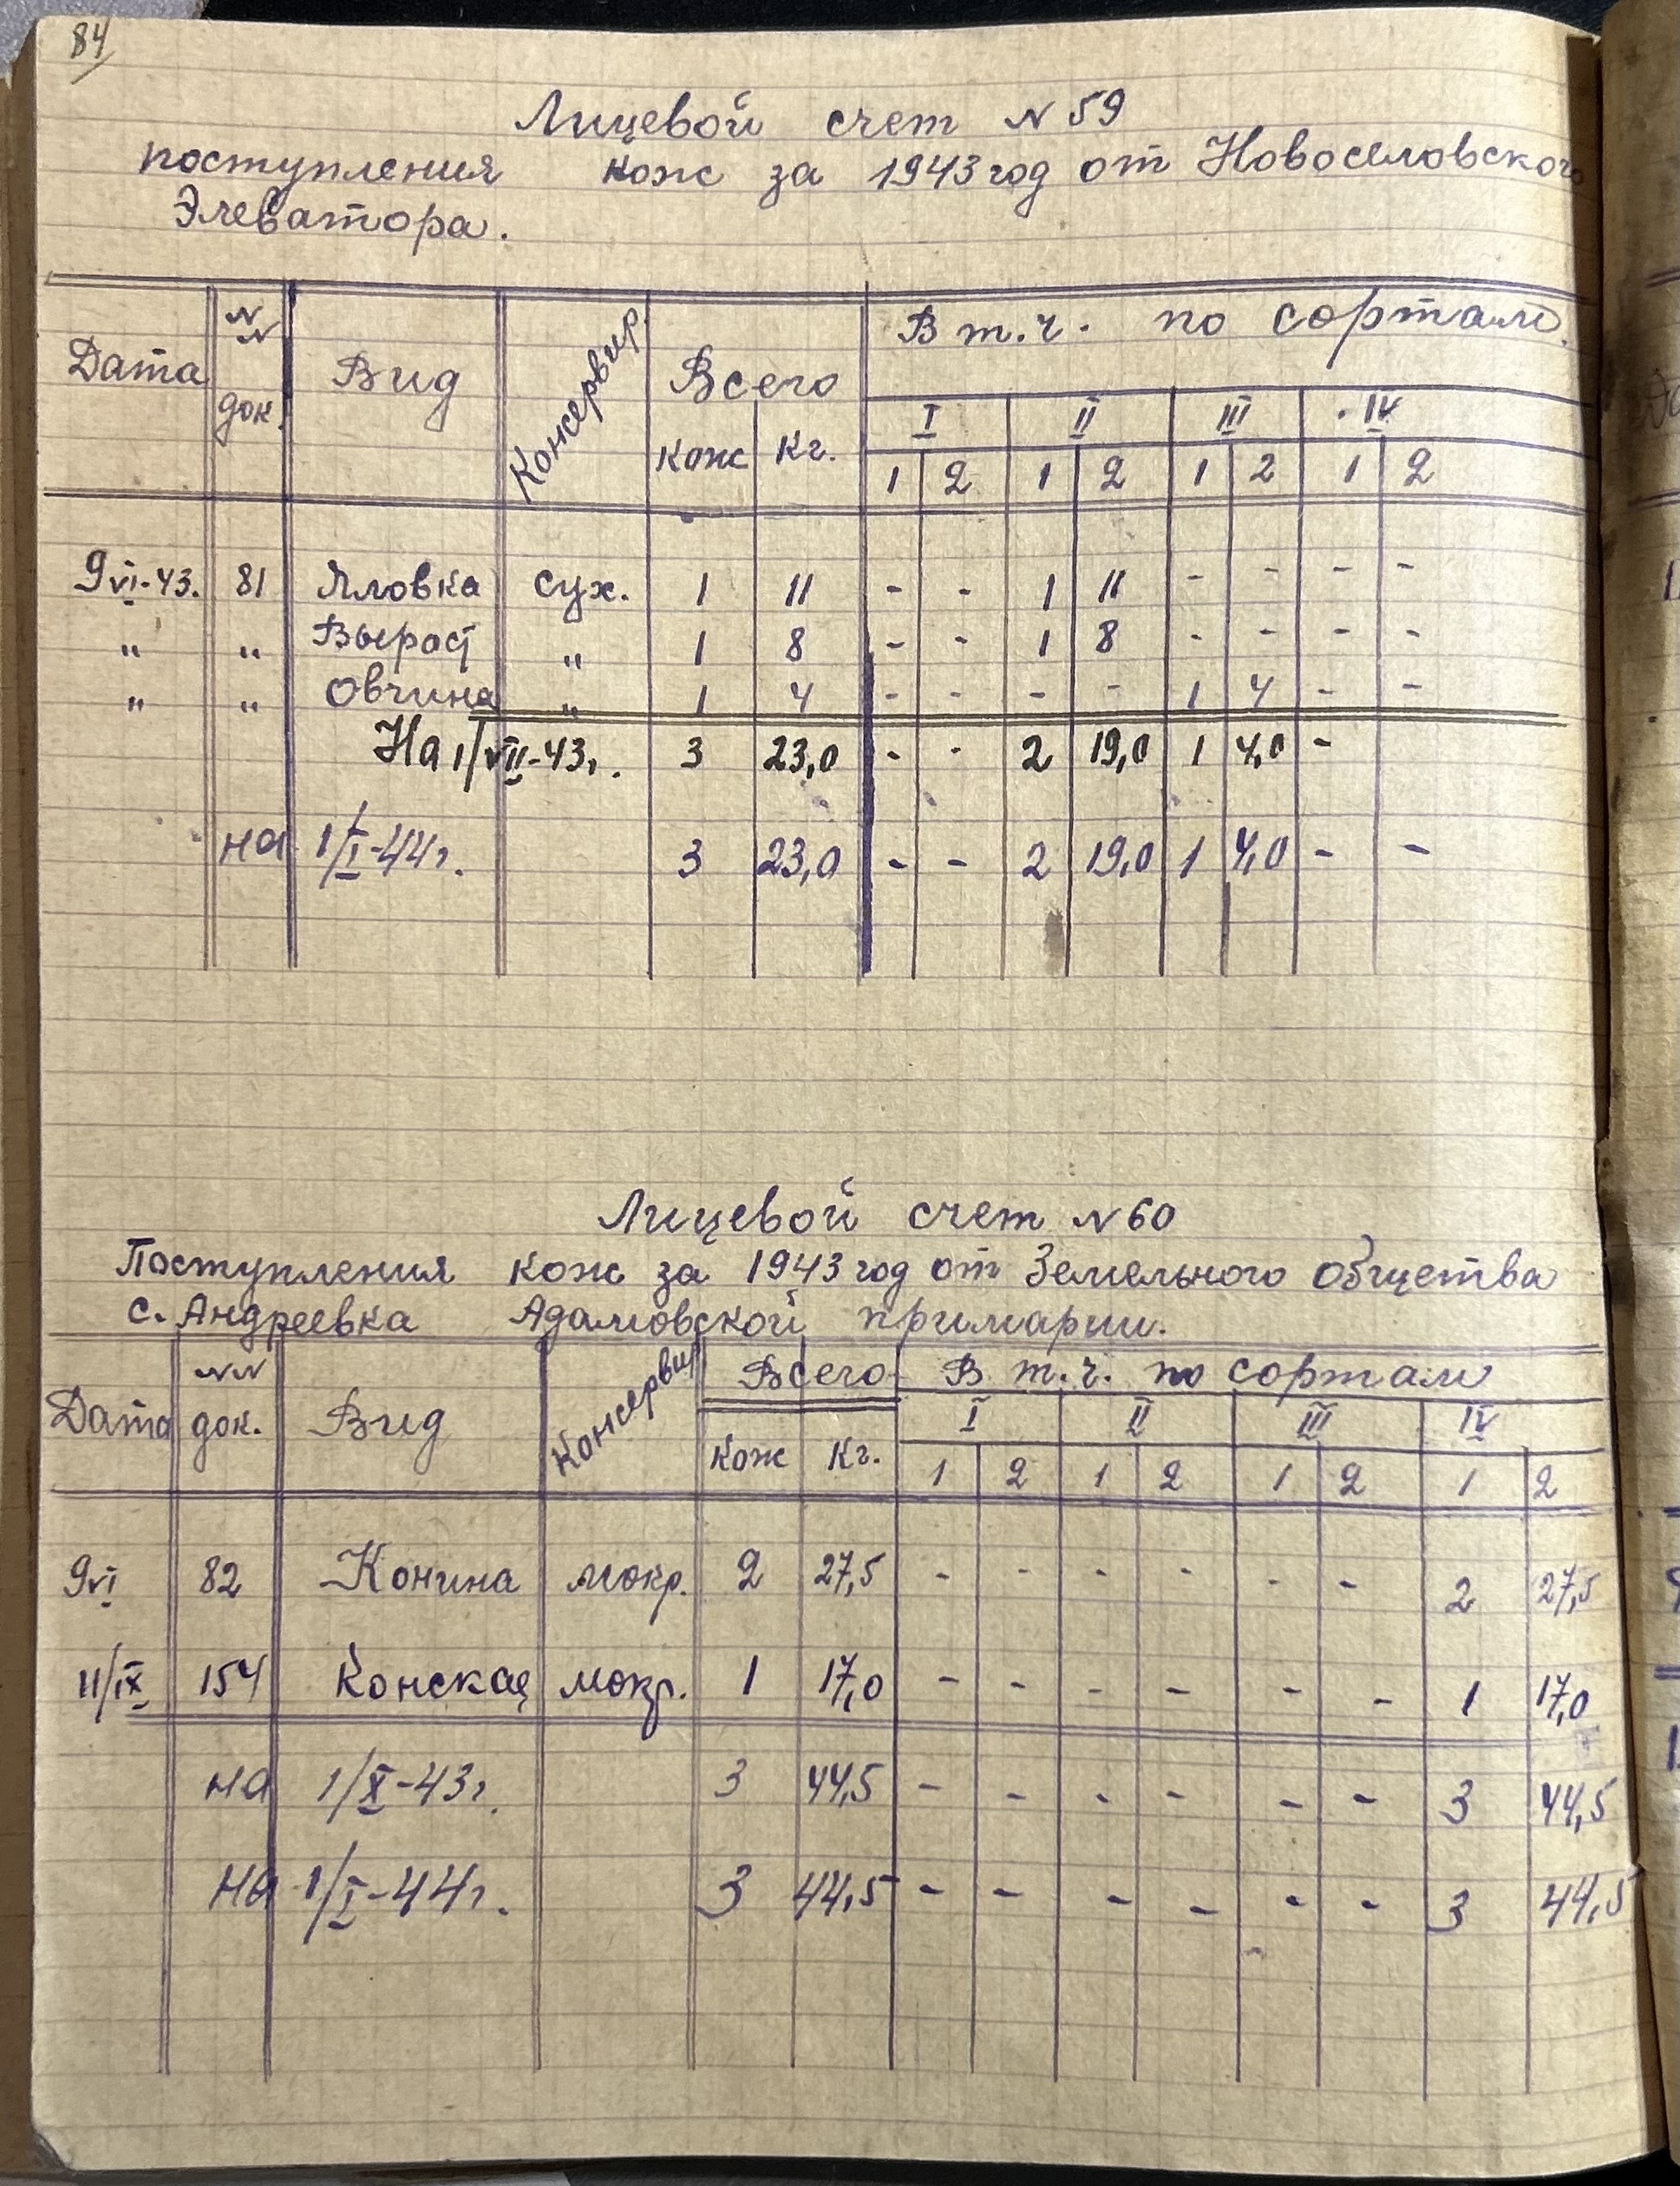 84
Лицевой счет N 59
поступления кож за 1943 год от Новоселовского
Элеватора.
Дата NN док. Вид Консервир. Всего В т.ч. по сортам
кож кг. I II III IV
1 2 1 2 1 2 1 2
9 VI-43. 81 Яловка сух. 1 11 - - 1 11 - - - -
" " Вырост " 1 8 - - 1 8 - - - -
" " Овчина " 1 4 - - - - 1 4 - -
На 1/VII-43г. 3 23,0 - - 2 19,0 1 4,0 -
на 1/I-44г. 3 23,0 - - 2 19,0 1 4,0 - -
Лицевой счет N 60
Поступления кож за 1943 год от Земельного общества
с. Андреевка Адамовской примарии.
Дата NN док. Вид Консервир Всего В т.ч. по сортам
кож кг. I II III IV
1 2 1 2 1 2 1 2
9 VI 82 Конина мокр. 2 27,5 - - - - - - 2 27,5
11/IX 154 Конская мокр. 1 17,0 - - - - - - 1 17,0
на 1/X-43г. 3 44,5 - - - - - - 3 44,5
на 1/I-44г. 3 44,5 - - - - - - 3 44,5